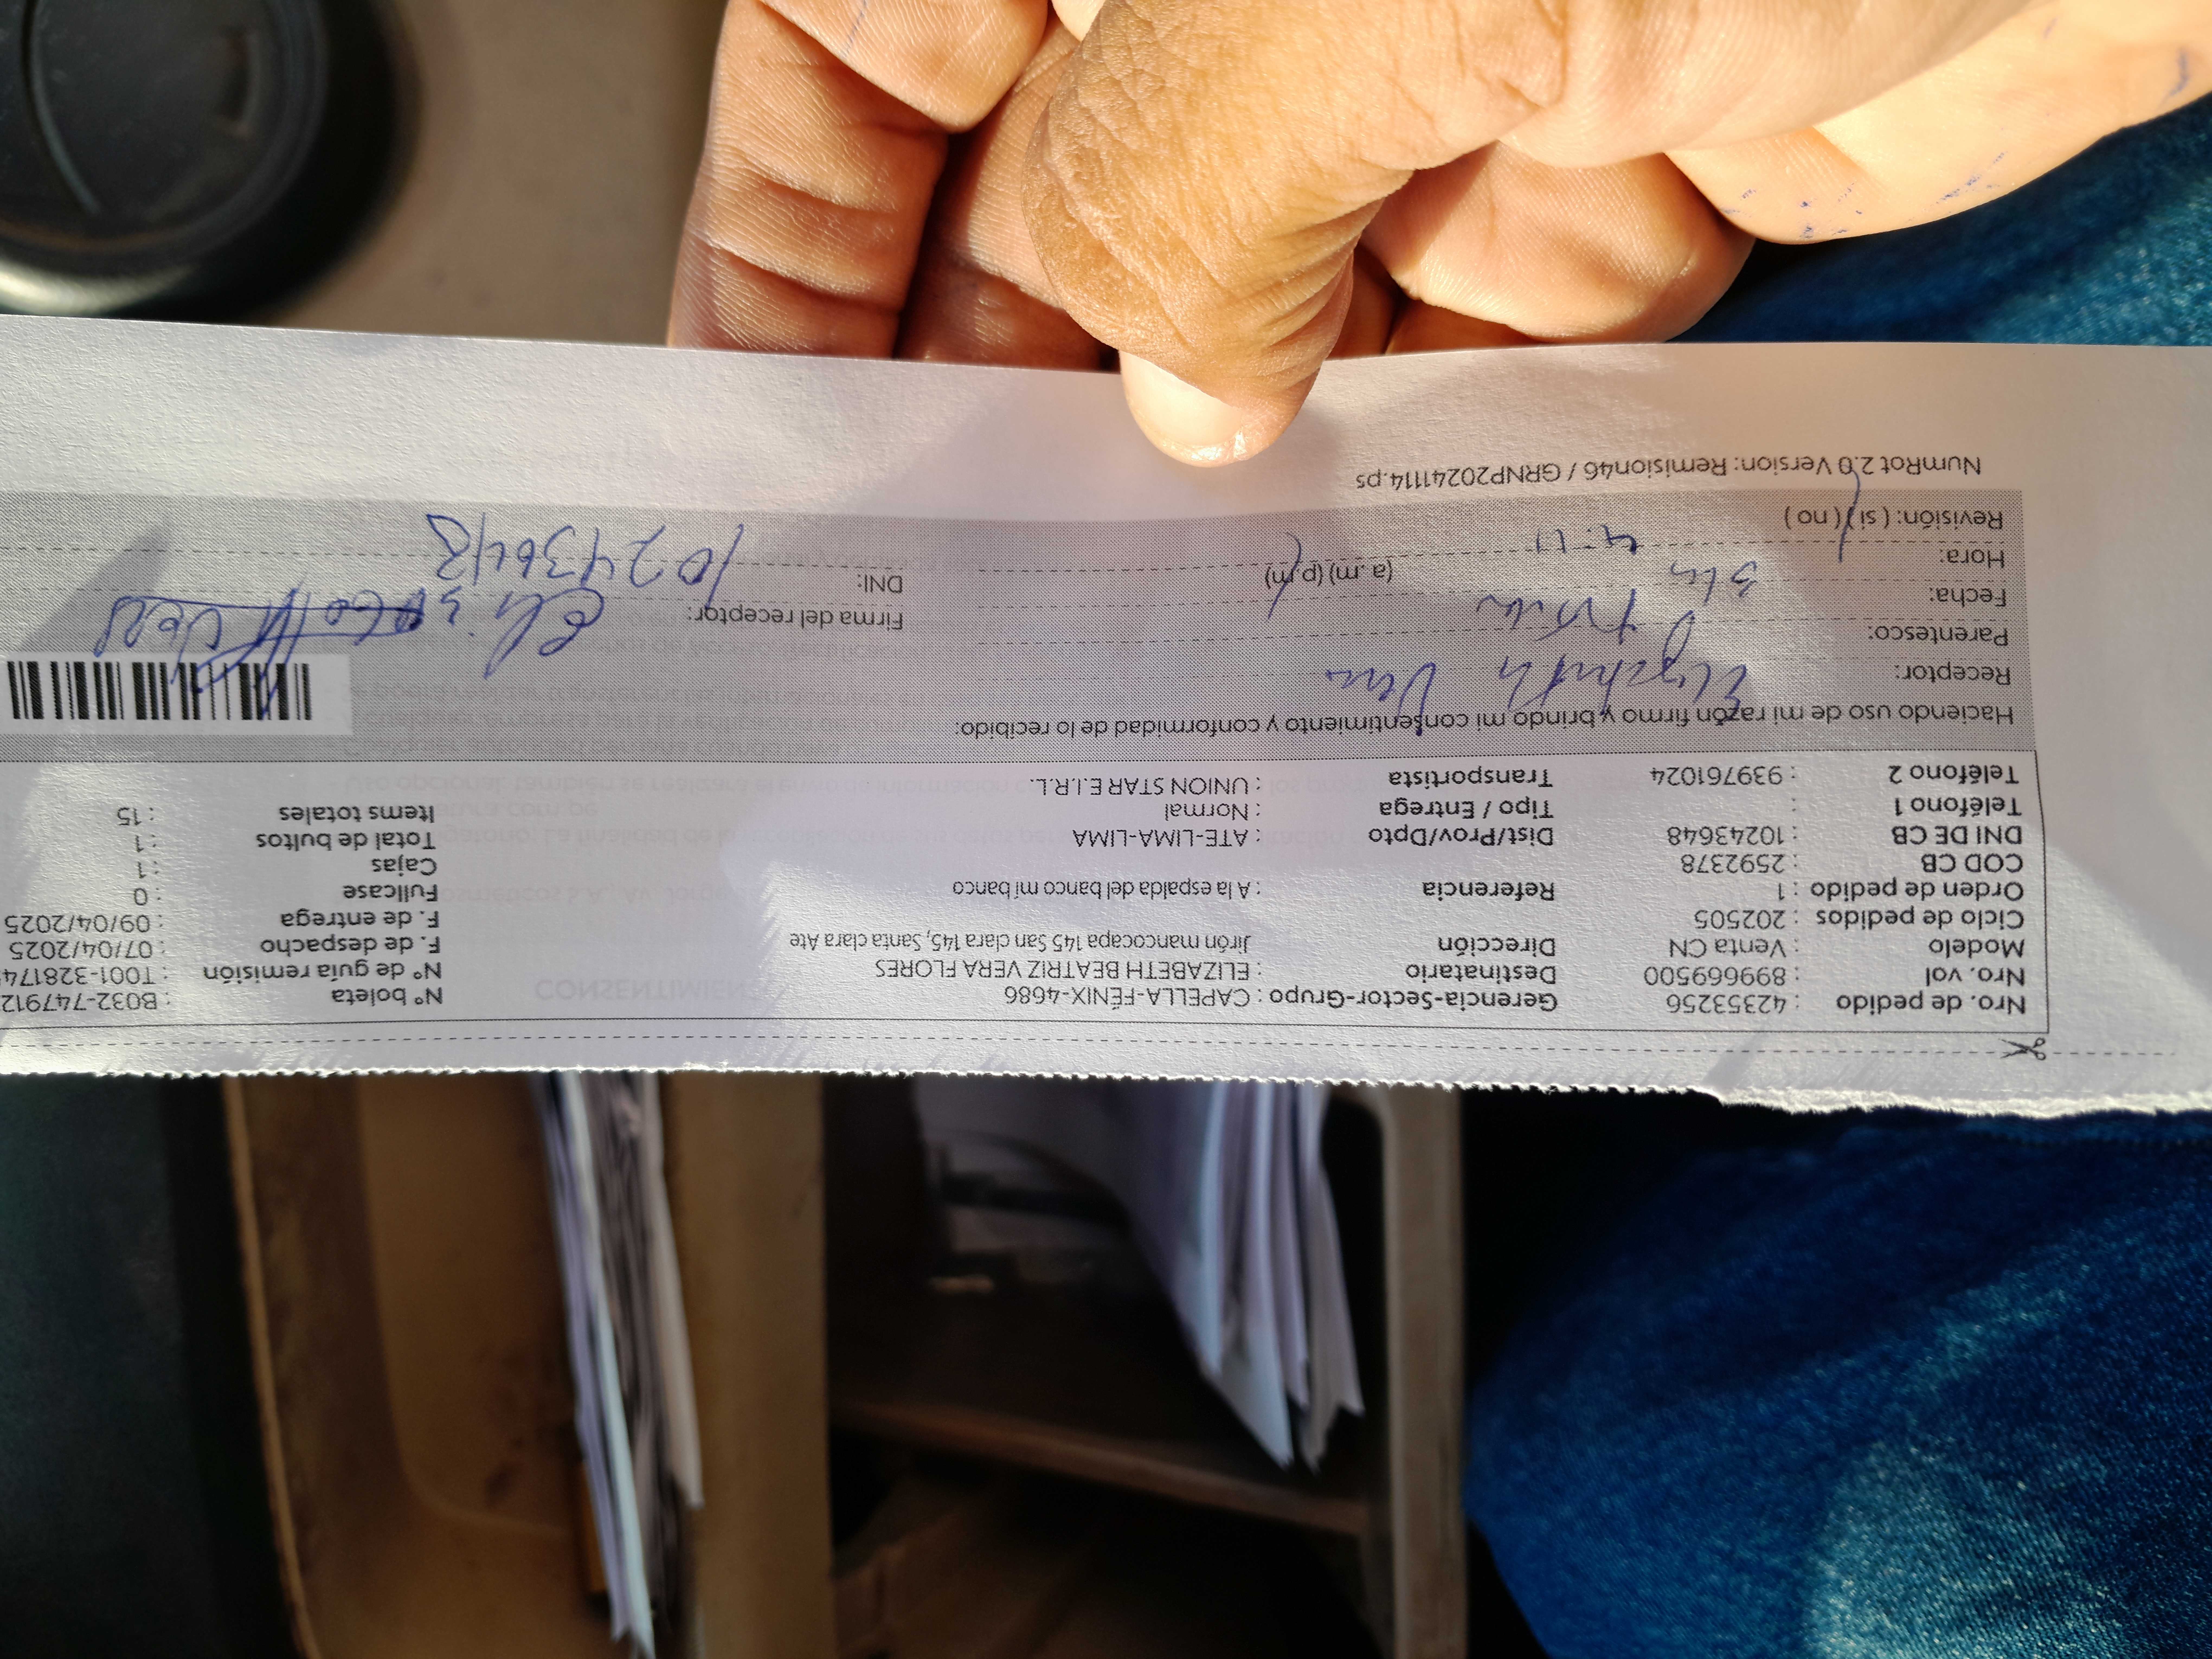 Nro. de pedido : 42353256 Gerencia-Sector-Grupo : CAPELLA-FÉNIX-4686 N° boleta : B032-747912
Nro. vol : 899669500 Destinatario : ELIZABETH BEATRIZ VERA FLORES N° de guía remisión : T001-3281745
Modelo : Venta CN Dirección Jirón mancocapa 145 San clara 145, Santa clara Ate F. de despacho : 07/04/2025
Ciclo de pedidos : 202505 F. de entrega : 09/04/2025
Orden de pedido : 1 Referencia : A la espalda del banco mi banco Fullcase : 0
COD CB : 2592378 Cajas : 1
DNI DE CB : 10243648 Dist/Prov/Dpto : ATE-LIMA-LIMA Total de bultos : 1
Teléfono 1 : Tipo / Entrega : Normal Items totales : 15
Teléfono 2 : 939761024 Transportista : UNION STAR E.I.R.L.
Haciendo uso de mi razón firmo y brindo mi consentimiento y conformidad de lo recibido:
Receptor: Elizabeth Vera
Parentesco: Firma del receptor:
Fecha: DNI: 10243648
Hora: 4:11 (a.m) (p.m)
Revisión: ( si ) ( no )
NumRot 2.0 Version: Remision46 / GRNP20241114.ps